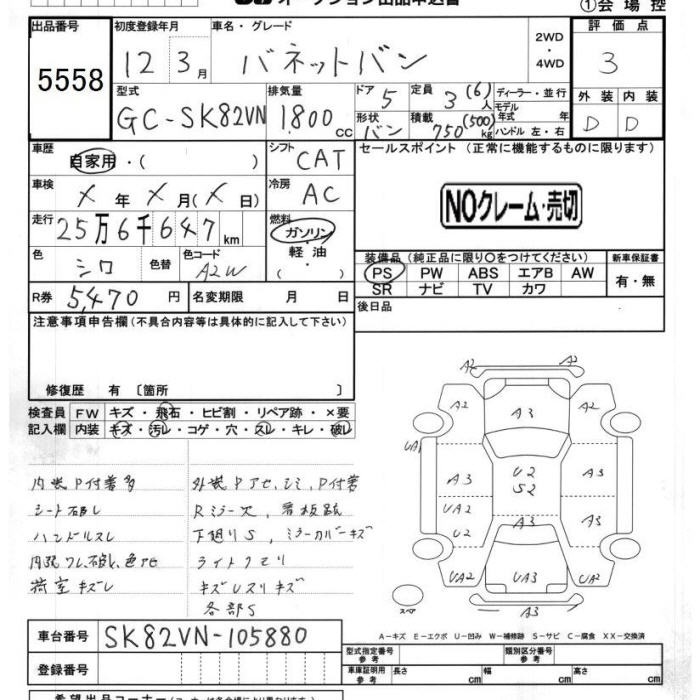 オークション出品申込書 ①会場控
出品番号 初度登録年月 車名・グレード 2WD ・ 4WD 評価点
5558 12 3月 バネットバン 3
型式 排気量 ドア 定員 ディーラー・並行 外装 内装
GC-SK82VN 1,800 cc 5 3(6)人 モデル年式 年
形状 バン 積載 750(500)kg ハンドル 左・右 D D
車歴 自家用・( ) シフト CAT セールスポイント (正常に機能するものに限ります)
車検 X年 X月(X日) 冷房 AC
NOクレーム・売切
走行 25万6千647km 燃料 ガソリン・軽油・( )
色 シロ 色替 色コード A2W
装備品(純正品に限り○をつけてください) 新車保証書
PS PW ABS エアB AW 有・無
SR ナビ TV カワ
R券 5,470円 名変期限 月 日
後日品
注意事項申告欄(不具合内容等は具体的に記入して下さい)
修復歴 有 〔箇所 〕
検査員記入欄 FW キズ・飛石・ヒビ割・リペア跡・×要
内装 キズ・汚レ・コゲ・穴・スレ・キレ・破レ
内装P付着多 外装Pアセ、シミ、P付着
シート破レ Rミラー欠、看板跡
ハンドルスレ 下廻りS、ミラーカバーキズ
内張ワレ、破レ、色アセ ライトクモリ
荷室キズレ キズレスリキズ
各部S
A2 A2
A2 A3 A2
UA1
A3 U2 A3
UA2 S2
U2 A3 A3
UA2 UA3 UA2
スペア A3
A-キズ E-エクボ U-凹み W-補修跡 S-サビ C-腐食 XX-交換済
車台番号 SK82VN-105880
登録番号
型式指定番号 参考 類別区分番号 参考
車庫証明用 参考 長さ cm 幅 cm 高さ cm
希望出品コーナー